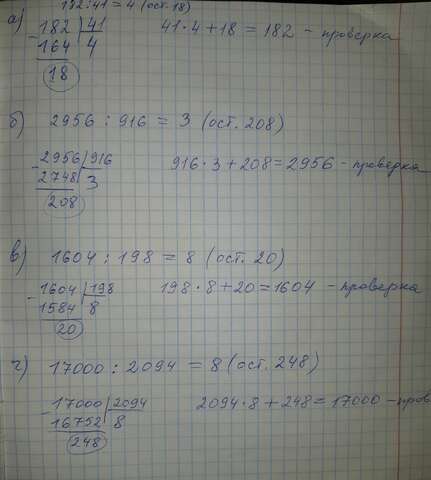 182 : 41 = 4 (ост. 18)
а) - 182 | 41 41 · 4 + 18 = 182 - проверка
164 | 4
18
б) 2956 : 916 = 3 (ост. 208)
- 2956 | 916 916 · 3 + 208 = 2956 - проверка
2748 | 3
208
в) 1604 : 198 = 8 (ост. 20)
- 1604 | 198 198 · 8 + 20 = 1604 - проверка
1584 | 8
20
г) 17000 : 2094 = 8 (ост. 248)
- 17000 | 2094 2094 · 8 + 248 = 17000 - пров
16752 | 8
248